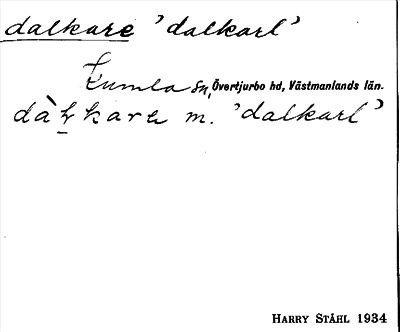 dalkare 'dalkarl'
Kumla sn, Övertjurbo hd, Västmanlands län.
dàkkara m. 'dalkarl'
HARRY STÅHL 1934